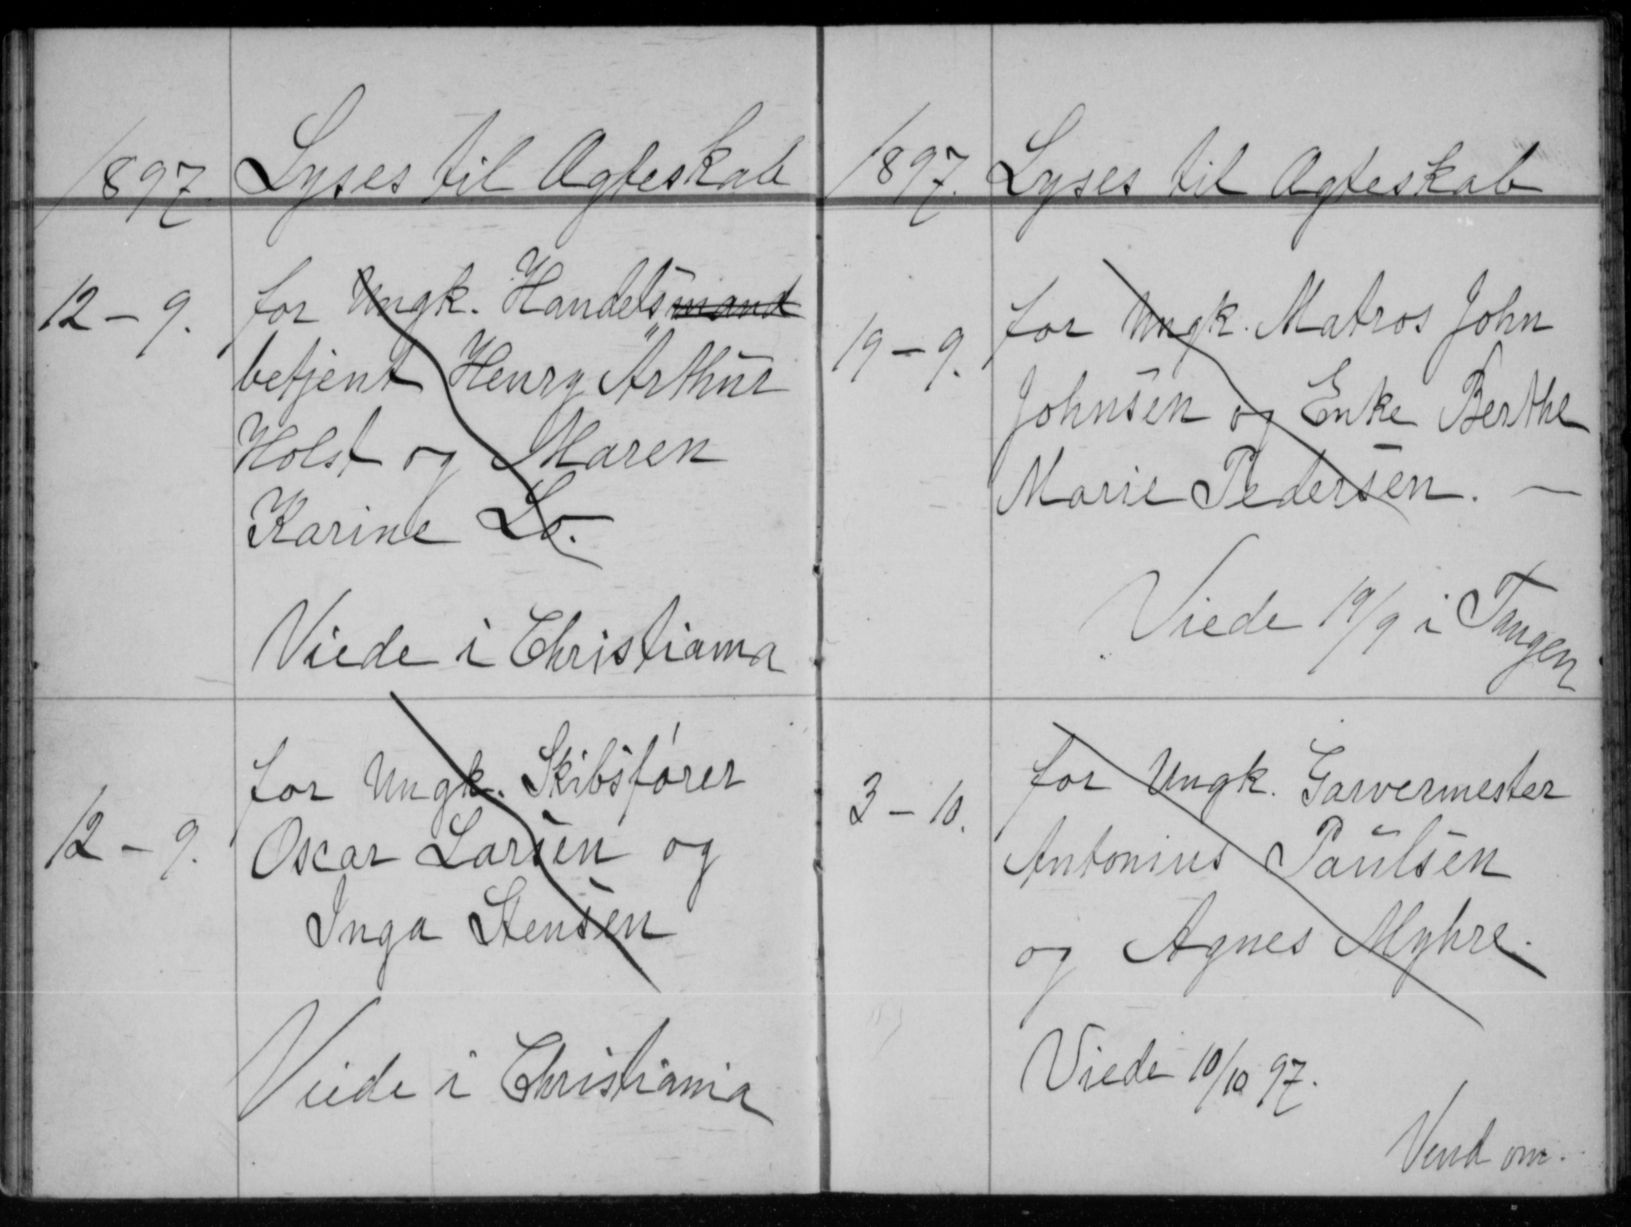 1897. Lyses til Ægteskab
12 - 9. for Ungk. Handelsmand
betjent Henry Arthur
Holst og Maren
Karine Lo.
Viede i Christiania
12 - 9. for Ungk. Skibsfører
Oscar Larsen og
Inga Stensen
Viede i Christiania
1897. Lyses til Ægteskab
19 - 9. for Ungk. Matros John
Johnsen og Enke Berthe
Marie Pedersen. —
Viede 19/9 i Tangen
3 - 10. for Ungk. Garvermester
Antonius Paulsen
og Agnes Myhre.
Viede 10/10 97.
Vend om.